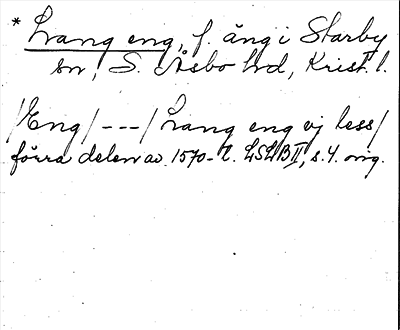 * Lang eng, f. äng i Starby
sn, S. Åsbo hd, Krist. l.
/Eng/ --- / Lang eng vj less/
förra delen av 1570-t. LSLB II, s. 4. orig.